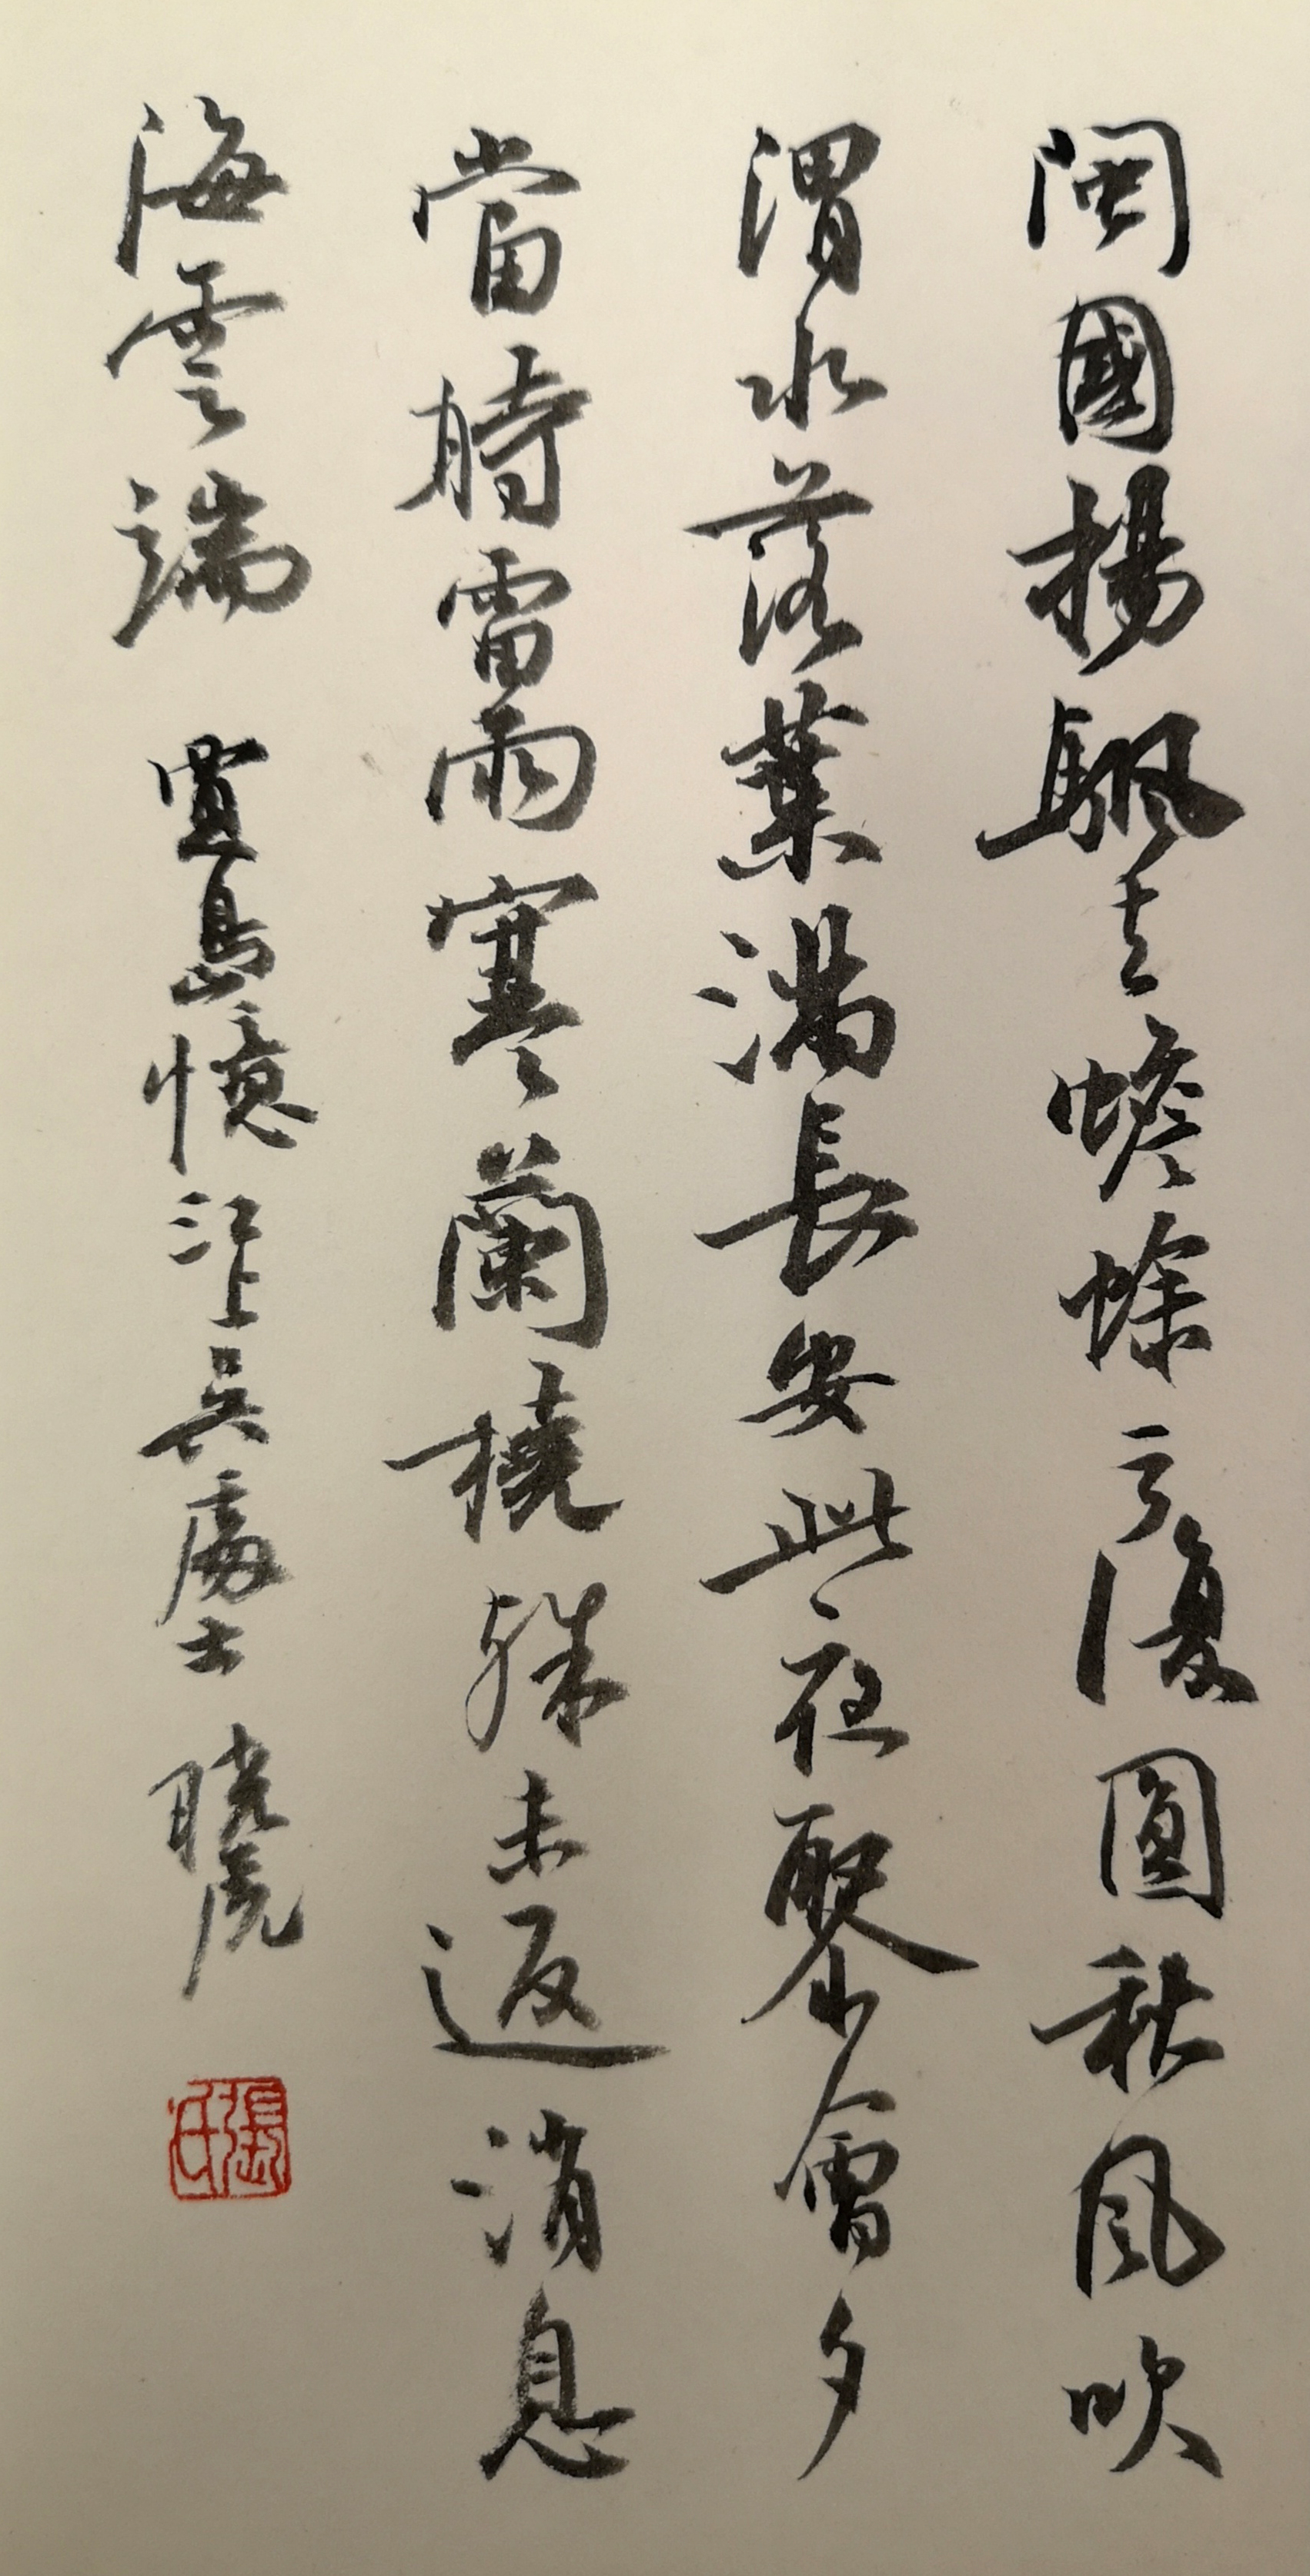 閩國揚颿去蟾蜍亏復圓秋風吹
渭水落葉滿長安此夜聚會夕
當時雷雨寒蘭橈殊未返消息
海雲端 賈島憶江上吳處士 曉虎
張氏